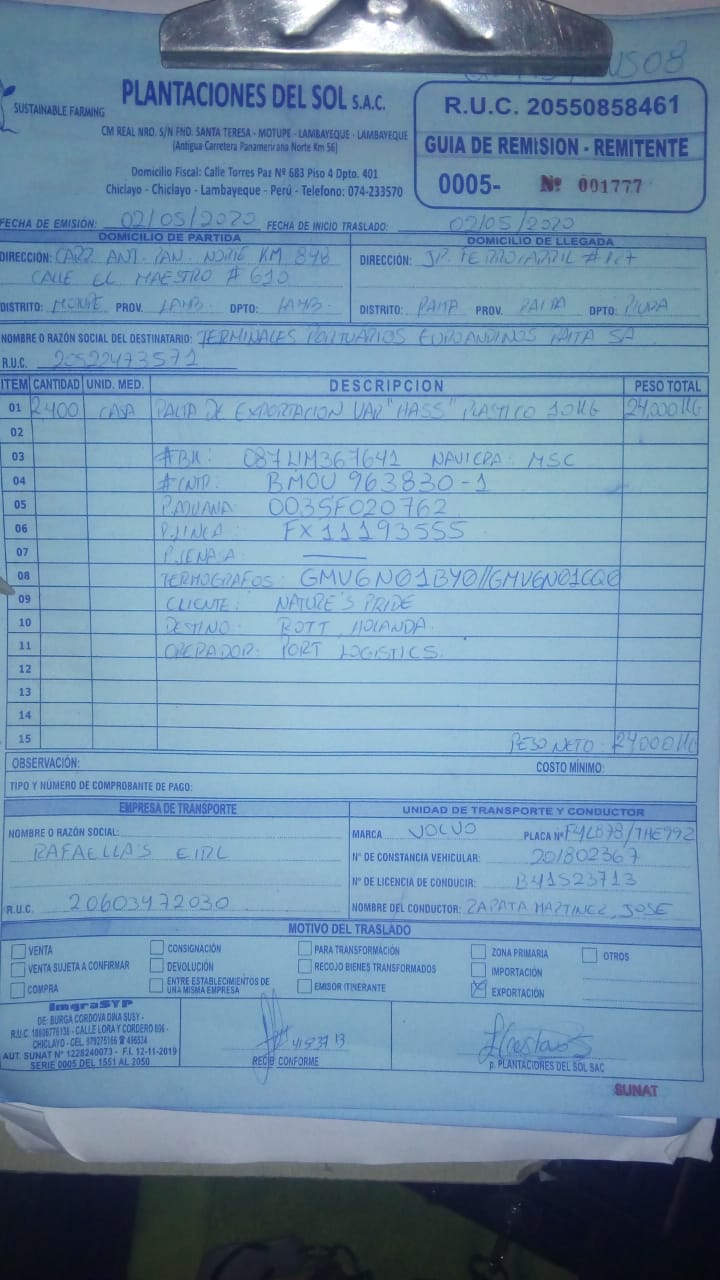 SUSTAINABLE FARMING
PLANTACIONES DEL SOL S.A.C.
CM REAL NRO. S/N FND. SANTA TERESA - MOTUPE - LAMBAYEQUE - LAMBAYEQUE
(Antigua Carretera Panamericana Norte Km 56)
Domicilio Fiscal: Calle Torres Paz Nº 683 Piso 4 Dpto. 401
Chiclayo - Chiclayo - Lambayeque - Perú - Telefono: 074-233570
R.U.C. 20550858461
GUIA DE REMISION - REMITENTE
0005- Nº 001777
FECHA DE EMISIÓN: 02/05/2020 FECHA DE INICIO TRASLADO: 02/05/2020
DOMICILIO DE PARTIDA
DIRECCIÓN: CARR. ANT. PAN. NORTE KM
CALLE EL MAESTRO # 610
DISTRITO: MOTUPE PROV. LAMB. DPTO: LAMB.
DOMICILIO DE LLEGADA
DIRECCIÓN: JR. FERROCARRIL
DISTRITO: PAITA PROV. PAITA DPTO: PIURA
NOMBRE O RAZÓN SOCIAL DEL DESTINATARIO: TERMINALES PORTUARIOS EUROANDINOS PAITA SA
R.U.C. 20522473571
ITEM CANTIDAD UNID. MED. DESCRIPCION PESO TOTAL
01 2,400 CAJA PALTA DE EXPORTACION VAR "HASS" PLASTICO 10KG 24,000KG
02
03 #BK: 087LIM367641 NAVIERA: MSC
04 #CNTR: BMOU 963830-1
05 P.ADUANA 003SF020762
06 P.LINEA: FX11193555
07 P.SENASA:
08 TERMOGRAFOS: GMV6N01BY0//GMV6N01CQ0
09 CLIENTE: NATURE'S PRIDE
10 DESTINO: ROTT, HOLANDA.
11 OPERADOR: PORT LOGISTICS.
12
13
14
15 PESO NETO: 24,000KG
OBSERVACIÓN: COSTO MÍNIMO:
TIPO Y NÚMERO DE COMPROBANTE DE PAGO:
EMPRESA DE TRANSPORTE
NOMBRE O RAZÓN SOCIAL:
RAFAELLA'S EIRL
R.U.C. 20603472030
UNIDAD DE TRANSPORTE Y CONDUCTOR
MARCA VOLVO PLACA Nº F4L878/THE992
Nº DE CONSTANCIA VEHICULAR: 201802367
Nº DE LICENCIA DE CONDUCIR: B41523713
NOMBRE DEL CONDUCTOR: ZAPATA MARTINEZ, JOSE
MOTIVO DEL TRASLADO
VENTA CONSIGNACIÓN PARA TRANSFORMACIÓN ZONA PRIMARIA OTROS
VENTA SUJETA A CONFIRMAR DEVOLUCIÓN RECOJO BIENES TRANSFORMADOS IMPORTACIÓN
COMPRA ENTRE ESTABLECIMIENTOS DE UNA MISMA EMPRESA EMISOR ITINERANTE EXPORTACIÓN
ImgraSYP
DE: BURGA CORDOVA DINA SUSY -
R.U.C. - CALLE LORA Y CORDERO 806 -
CHICLAYO - CEL. 979275166
AUT. SUNAT Nº 1228240073 - F.I. 12-11-2019
SERIE 0005 DEL 1551 AL 2050
RECIBÍ CONFORME
p. PLANTACIONES DEL SOL SAC
SUNAT